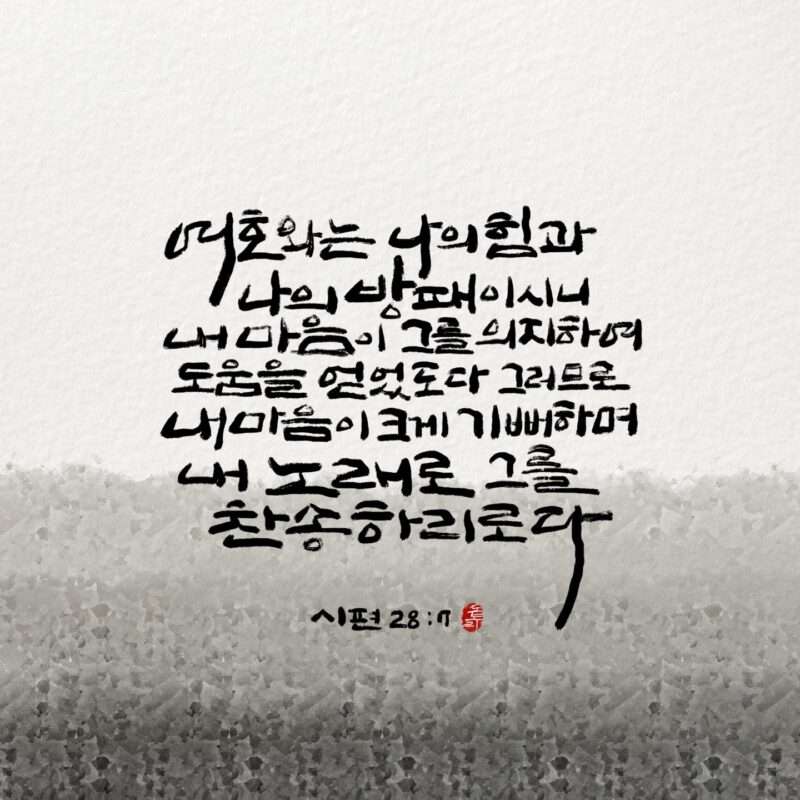 여호와는 나의 힘과
나의 방패이시니
내 마음이 그를 의지하여
도움을 얻었도다 그러므로
내 마음이 크게 기뻐하며
내 노래로 그를
찬송하리로다
시편 28:7